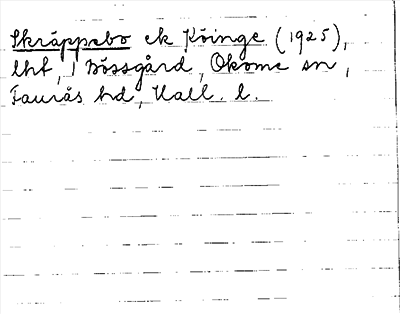 Skräppebo ek Köinge (1925),
lht, i Bössgård, Okome sn,
Faurås hd, Hall. l.